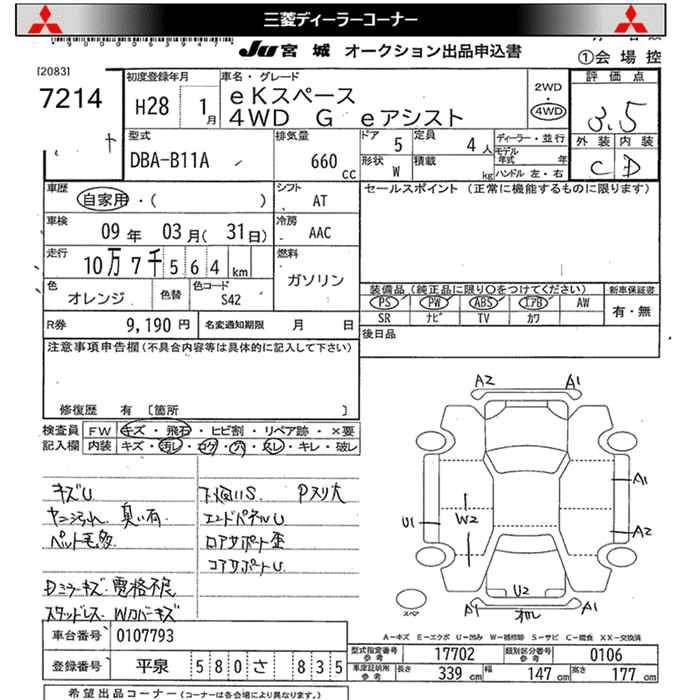 三菱ディーラーコーナー
JU宮城 オークション出品申込書
①会場控
[2083]
7214
初度登録年月 H28 1月
車名・グレード
eKスペース
4WD G eアシスト
2WD
4WD
評価点
3.5
外装 内装
C D
型式 DBA-B11A
排気量 660 CC
ドア 5 定員 4人
形状 W 積載 kg
ディーラー・並行
モデル年式 年
ハンドル 左・右
車歴 自家用・( )
シフト AT
セールスポイント (正常に機能するものに限ります)
車検 09年 03月(31日)
冷房 AAC
走行 10万7千564km
燃料 ガソリン
色 オレンジ 色替 色コード S42
装備品(純正品に限り○をつけてください) 新車保証書
PS PW ABS エアB AW 有・無
SR ナビ TV カワ
R券 9,190円 名変通知期限 月 日
後日品
注意事項申告欄(不具合内容等は具体的に記入して下さい)
修復歴 有 [箇所 ]
検査員 FW キズ・飛石・ヒビ割・リペア跡・×要
記入欄 内装 キズ・汚レ・コゲ・穴・スレ・キレ・破レ
A2 A1
キズU 下廻りS Pスリ大
ヤニ汚れ 臭い有 エンドパネルU
ペット毛多 ロアサポート歪
コアサポートU
Dミラーキズ 電格不良
スタッドレス Wカバーキズ
A1
U1 W2 A2
U2
スペア A1 オレ
A-キズ E-エクボ U-凹み W-補修跡 S-サビ C-腐食 XX-交換済
車台番号 0107793
型式指定番号 参考 17702 類別区分番号 参考 0106
登録番号 平泉 580さ 835
車庫証明用 参考 長さ 339cm 幅 147cm 高さ 177cm
希望出品コーナー(コーナーは各会場により異なります。)